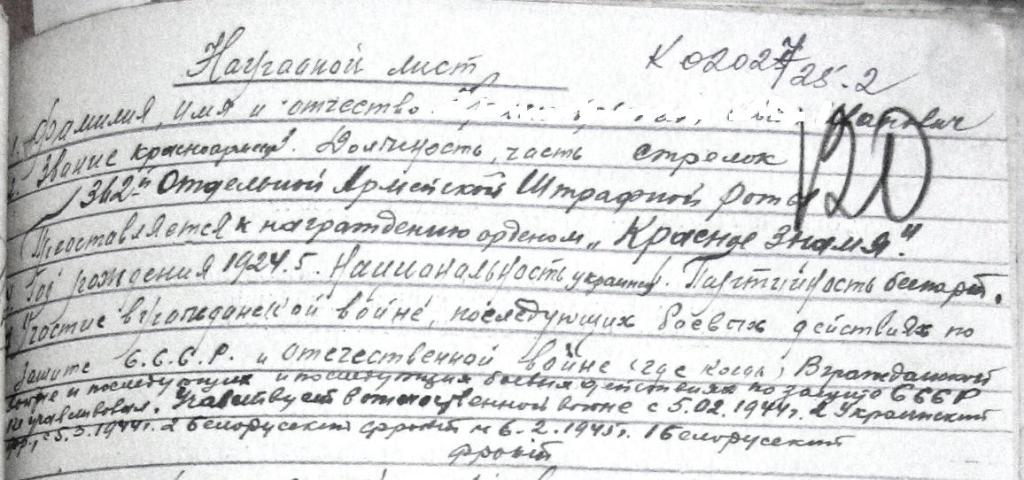 Наградной лист
К 0202 7/25-2
1. Фамилия, имя и отчество
120
2. Звание красноармеец. Должность, часть стрелок
362й Отдельной Армейской Штрафной роты
Представляется к награждению орденом „Красное Знамя".
Год рождения 1924 г. Национальность украинец. Партийность беспарт.
Участие в гражданской войне, последующих боевых действиях по
защите С.С.С.Р. и отечественной войне (где когда) В гражданской
войне и последующих и последующих боевых действиях по защите СССР
не участвовал. Участвует в отечественной войне с 5.02.1944г. 2 Украинский
фр., с 5.3.1944г. 2 Белорусский фронт и 6.2.1945г. 1 Белорусский
фронт